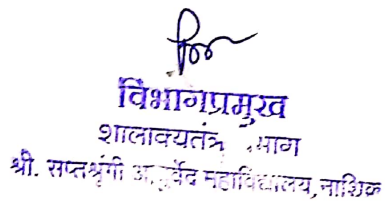 विभागप्रमुख
शालाक्यतंत्र विभाग
श्री. सप्तश्रृंगी आयुर्वेद महाविद्यालय,नाशिक